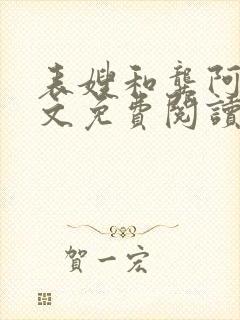 表嫂和龔阿
文免費閱讀
賀一宏